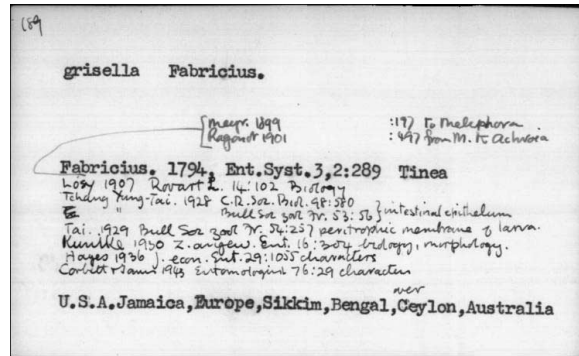 189
grisella Fabricius.
[Meyr. 1899 :197 to Meliphora
Ragonot 1901 :497 from M. to Achroia
Fabricius. 1794, Ent.Syst.3,2:289 Tinea
Lósy 1907 Rovart L. 14:102 Biology
Tchang Yung-Tai. 1928 C.R.Soc.Biol. 98:580
" Bull Soc zool Fr. 53:56 } intestinal epithelium
Tai. 1929 Bull Soc zool Fr. 54:257 peritrophic membrane of larva.
1930 Z. angew. Ent. 16:304 biology, morphology.
Hayes 1936 J. econ. Ent. 29:1055 characters
Corbett & 1943 Entomologist 76:29 characters
U.S.A.Jamaica,Europe,Sikkim,Bengal,Ceylon,Australia